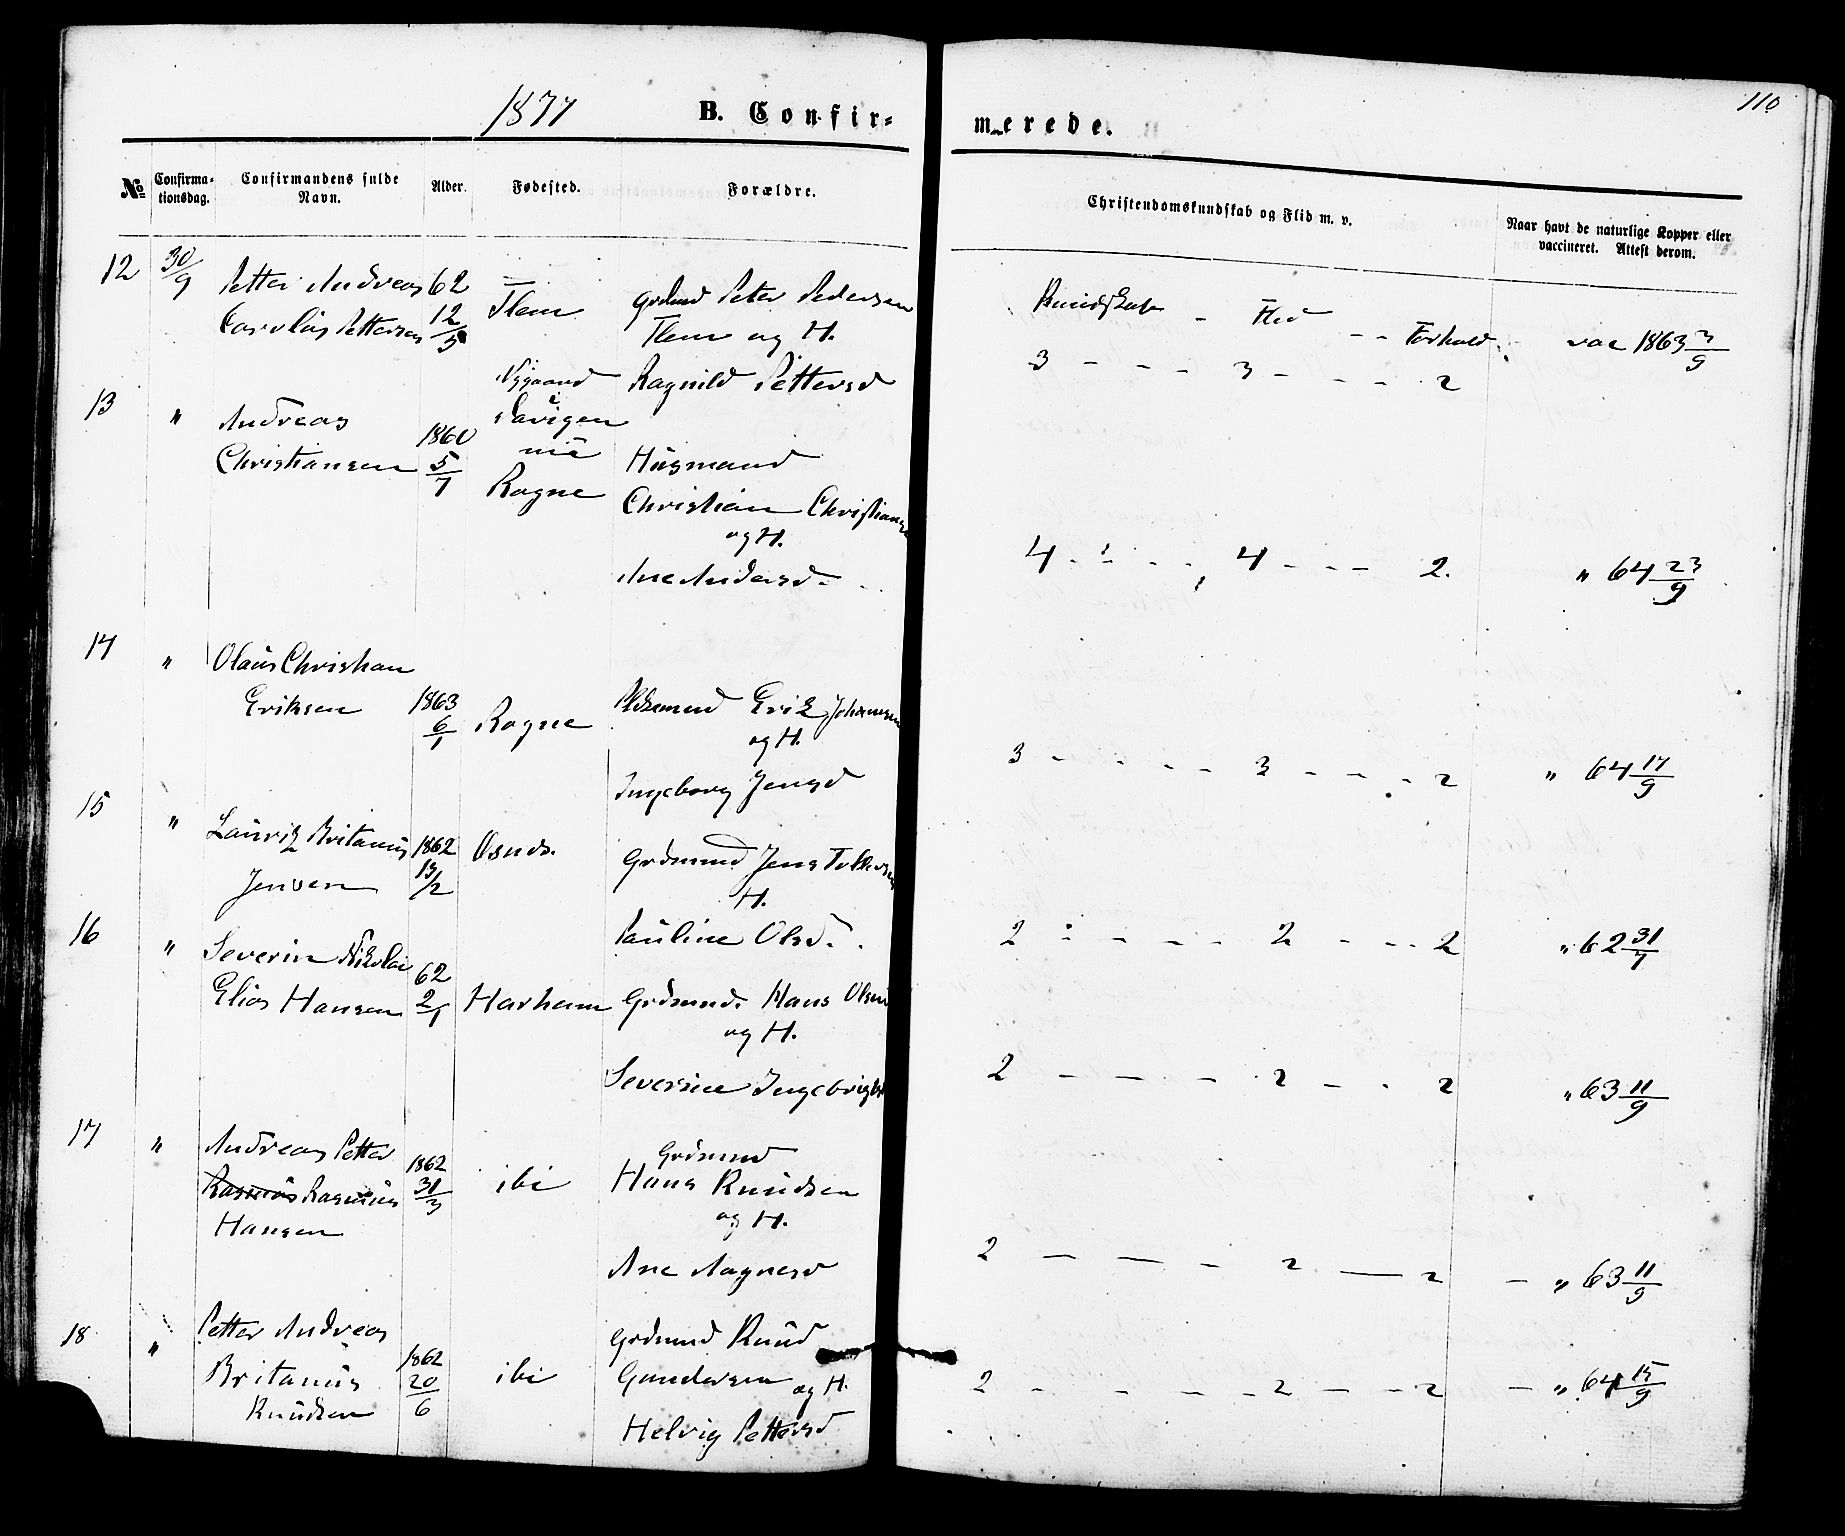 1877 B. Confir-
merede.
110
No
Confirma-
tionsdag.
Confirmandens fulde
Navn.
Alder.
Fødested.
Forældre.
Christendomskundskab og Flid m. v.
Naar havt de naturlige Kopper eller
vaccineret. Attest derom.
12 30/9 Petter Andreas 62 Flem Grdmd Peter Pedersen
Carolus Pettersen 12/5 Flem og H.
Ragnild Pettersd
Kundskab - Flid - - Forhold vac 1863 3/9
3 - - - 3 - - - 2
13 " Andreas 1860
Christiansen 5/7
Rogne
Husmand
Christian Christians
og H.
Ane Andersd.
4 - - - 4 - - - 2. " 64 23/9
14 " Olaus Christian
Eriksen 1863 6/1 Rogne Erik Johansen
og H.
Ingeborg Jensd
3 - - - - 3 - - - 2 " 64 17/9
15 " Lauritz Britanus 1862 Osnes. Grdmand Jens
Jensen 13/2 H.
Pauline Olsd.
2 - - - - 2 - - - 2 " 62 31/7
16 " Severin Nikolai 62
Elias Hansen 2/1 Harham Grdmand. Hans Olsen
og H.
Severine Ingebrigts
2 - - - 2 - - 2 " 63 11/9
17 " Andreas Petter 1862 ibi Grdmand
Rasmus Rasmus 31/3 Hans Knudsen
Hansen og H.
Ane Aagnesd
2 - - - 2 - 2 - " 63 11/9
18 " Petter Andreas 1862 ibi Grdmand Knud
Britanus 20/6 Gundersen og H.
Knudsen Helvig Pettersd
2 - - - - 2 - - 2 - " 64 15/9